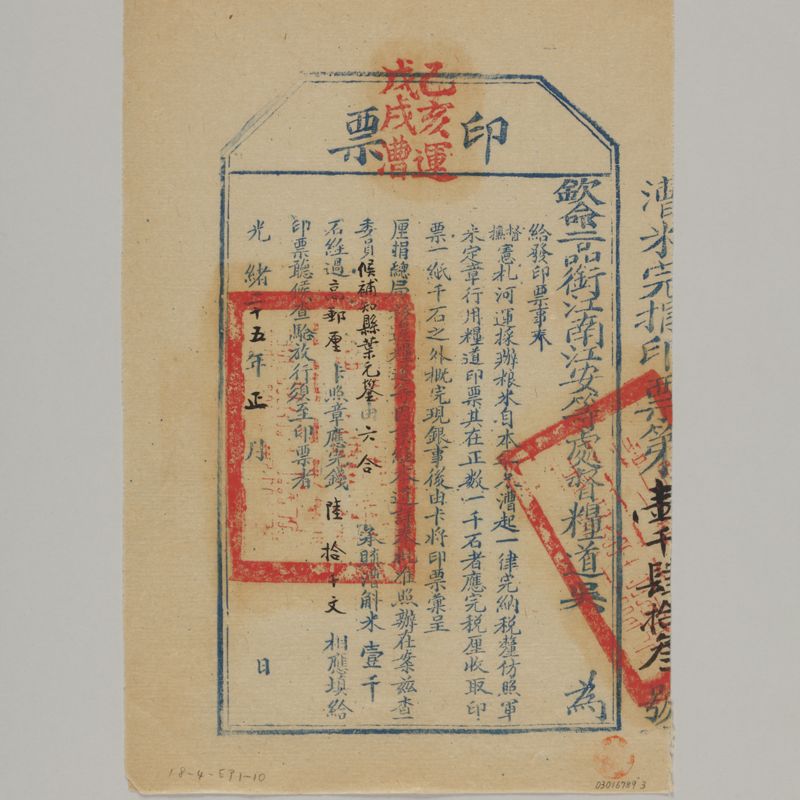 漕米完捐印票第壹千肆拾叁號
己亥運
戊戌漕
印票
欽命二品銜江南江安等處督糧道吳 為
給發印票事奉
督撫憲札河運採辦粮米自本 漕起一律完納稅釐仿照軍
米定章行用糧道印票其在正數一千石者應完稅厘收取印
票一紙千石之外概完現銀事後由卡將印票彙呈
厘捐總局 准照辦在案茲查
委員候補知縣葉元鋆由六合 採購漕斛米壹千
石經過高郵厘卡照章應完錢陸拾千文 相應填給
印票聽候查驗放行須至印票者
光緒二十五年正月 日
18-4-591-10
03016789 3